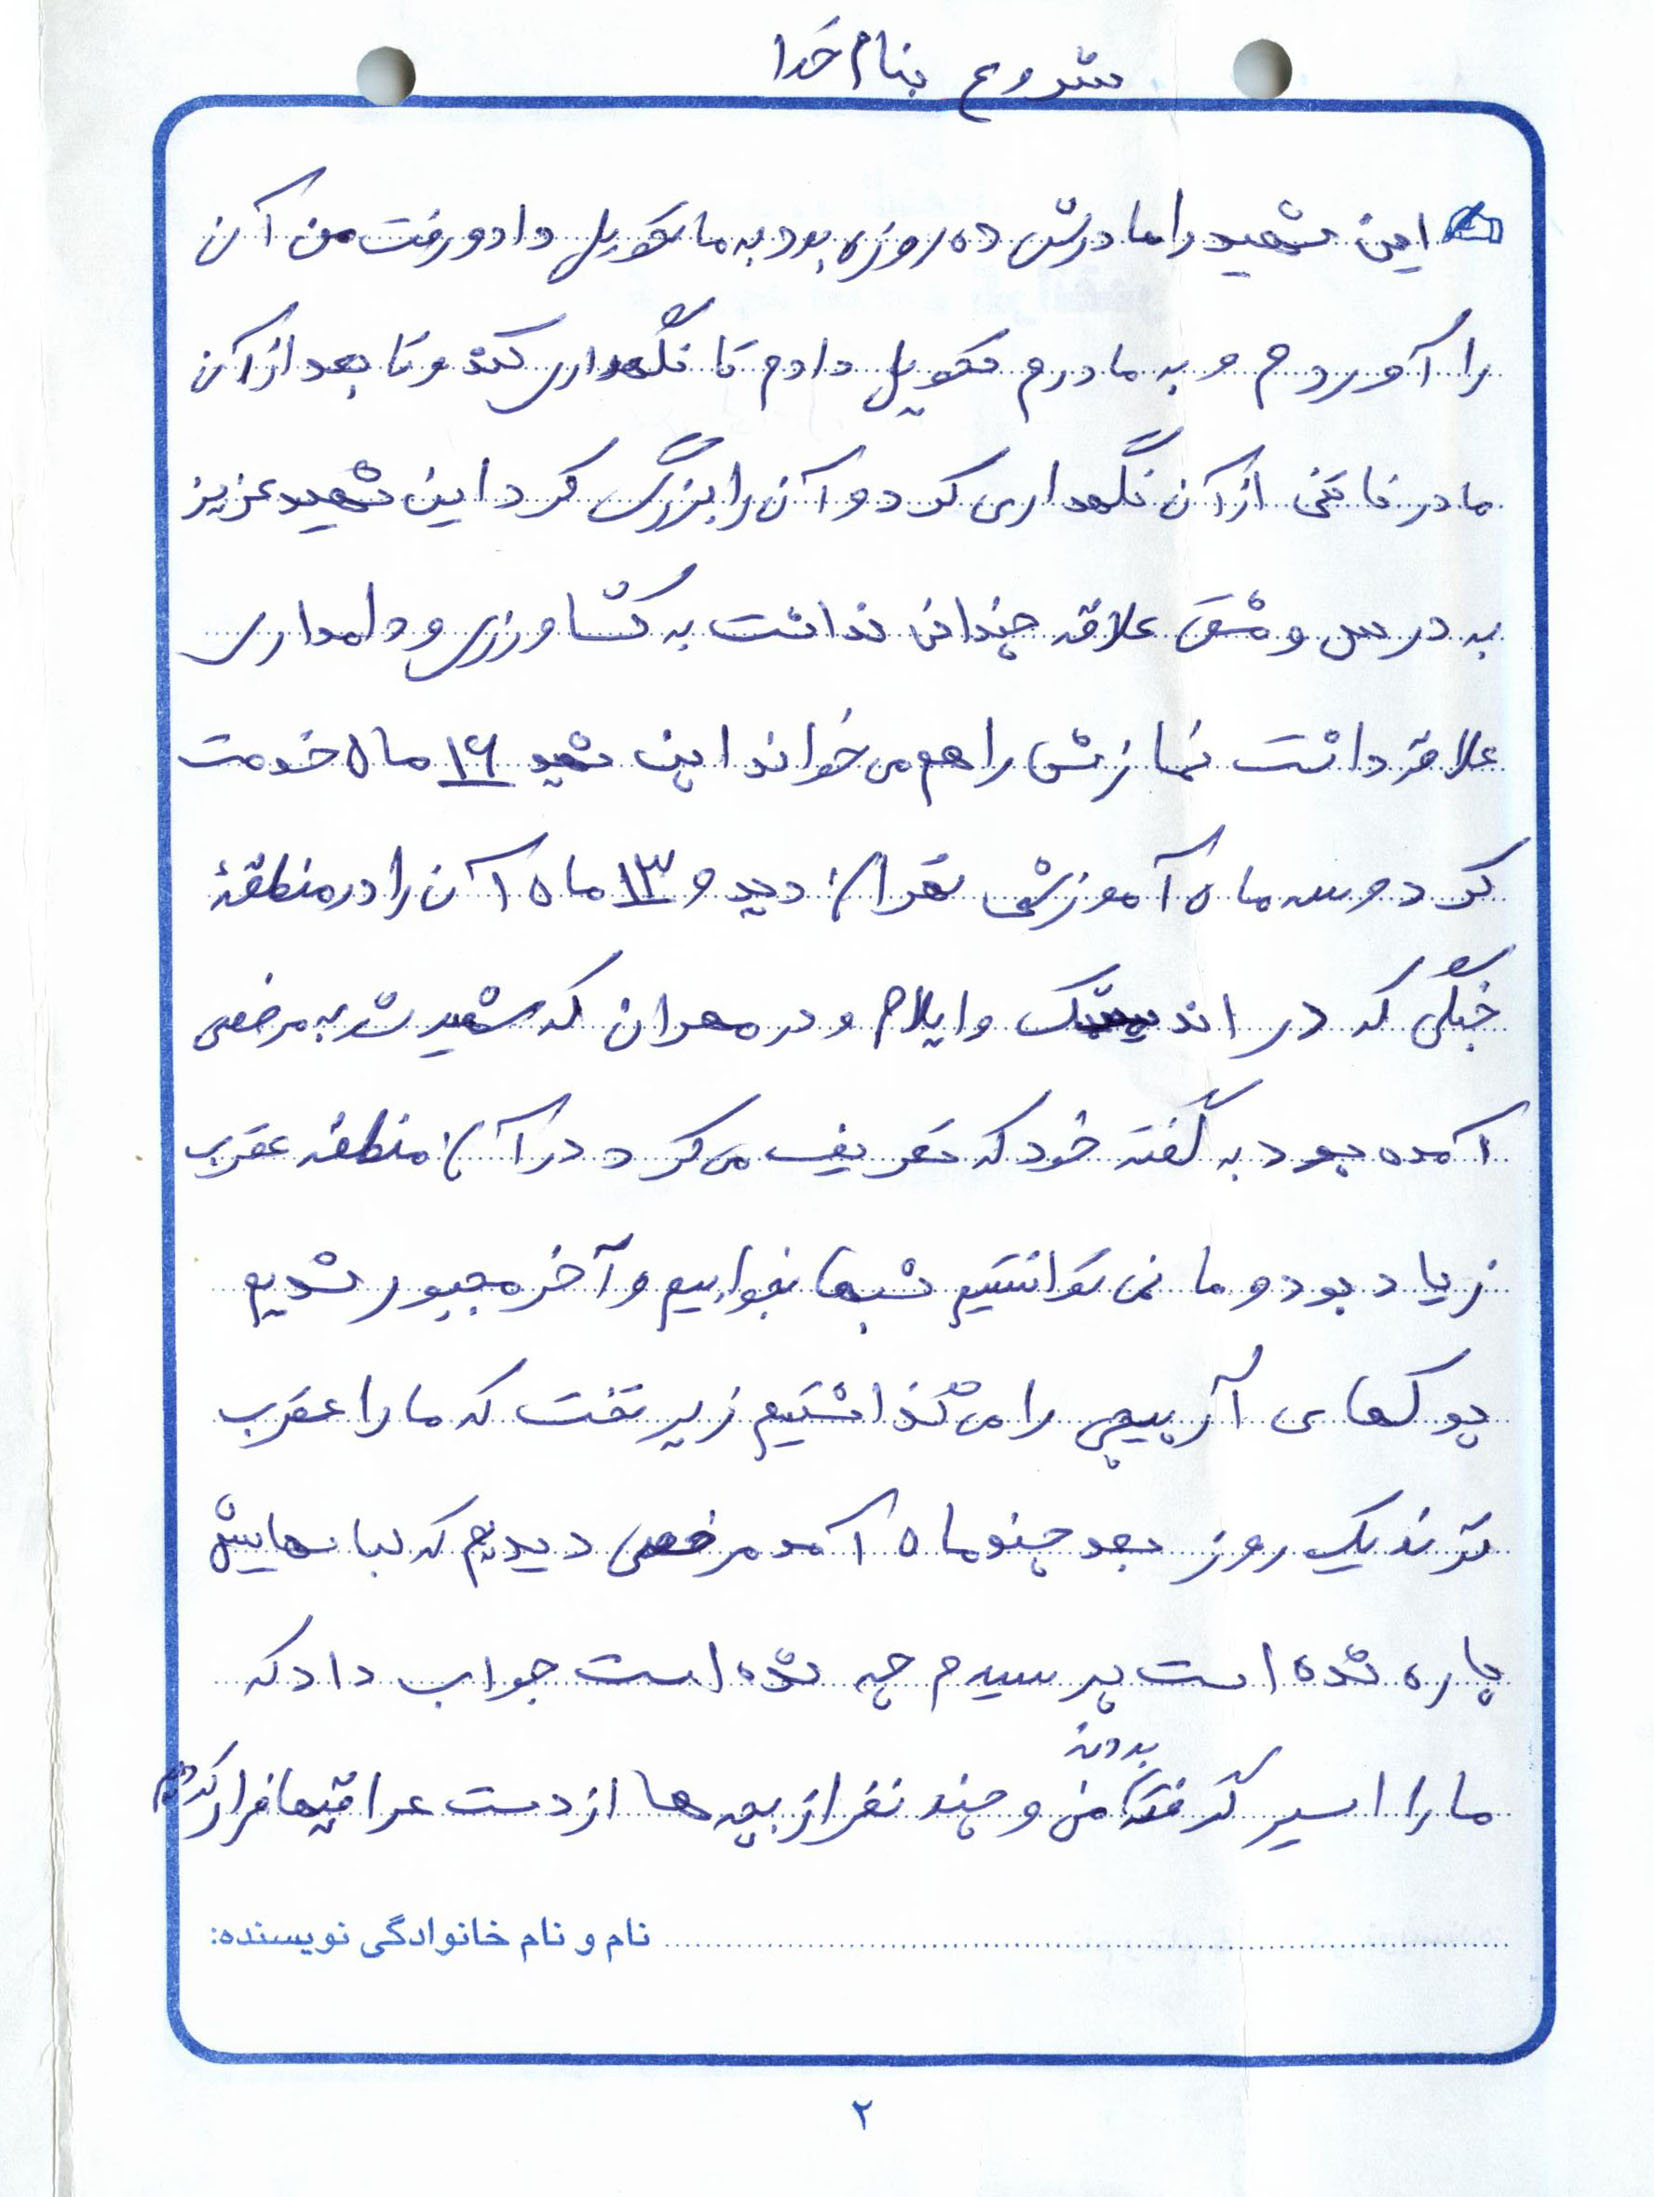 شروع بنام خدا
این شهید را مادرش ده روزه بود به ما تحویل داد و رفت من آن
را آوردم و به مادرم تحویل دادم تا نگهداری کند و تا بعد از آن
مادر ناتنی از آن نگهداری کرد و آن را بزرگ کرد این شهید عزیز
به درس و مشق علاقه چندانی نداشت به کشاورزی و دامداری
علاقه داشت نمازش را هم می خواند این شهید ۱۶ ماه خدمت
کرد و سه ماه آموزشی تهران دید و ۱۳ ماه آن را در منطقۀ
جنگی که در اندیمشک و ایلام و در مهران که شهید شد به مرخصی
آمده بود به گفته خود که تعریف می کرد در آن منطقه عقرب
زیاد بود و ما نمی توانستیم شبها بخوابیم و آخر مجبور شدیم
پوکهای آرپیچی را می گذاشتیم زیر تخت که ما را عقرب
نزند یک روز بعد چند ماه آمد مرخصی دیدیم که لباسهایش
پاره شده است پرسیدم چه شده است جواب داد که
ما را اسیر گرفته بودند من و چند نفر از بچه ها از دست عراقیها فرار کردیم
نام و نام خانوادگی نویسنده:
۲